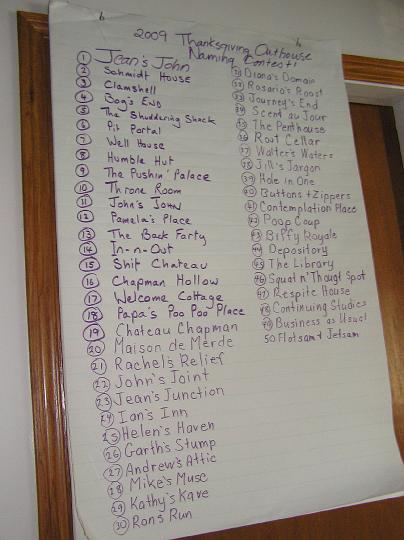 2009 Thanksgiving Outhouse
Naming Contest!
1 Jean's John
2 Schmidt House
3 Clamshell
4 Bog's End
5 The Shuddering Shack
6 Pit Portal
7 Well House
8 Humble Hut
9 The Pushin' Palace
10 Throne Room
11 John's John
12 Pamela's Place
13 The Back Forty
14 In-n-Out
15 Shit Chateau
16 Chapman Hollow
17 Welcome Cottage
18 Papa's Poo Poo Place
19 Chateau Chapman
20 Maison de Merde
21 Rachel's Relief
22 John's Joint
23 Jean's Junction
24 Ian's Inn
25 Helen's Haven
26 Garth's Stump
27 Andrew's Attic
28 Mike's Muse
29 Kathy's Kave
30 Ron's Run
31 Diana's Domain
32 Rosario's Roost
33 Journey's End
34 Scent au Jour
35 The Penthouse
36 Root Cellar
37 Walter's Waters
38 Jill's Jargon
39 Hole in One
40 Buttons + Zippers
41 Contemplation Place
42 Poop Coup
43 Biffy Royale
44 Depository
45 The Library
46 Squat n' Thought Spot
47 Respite House
48 Continuing Studies
49 Business as Usual
50 Flotsam + Jetsam